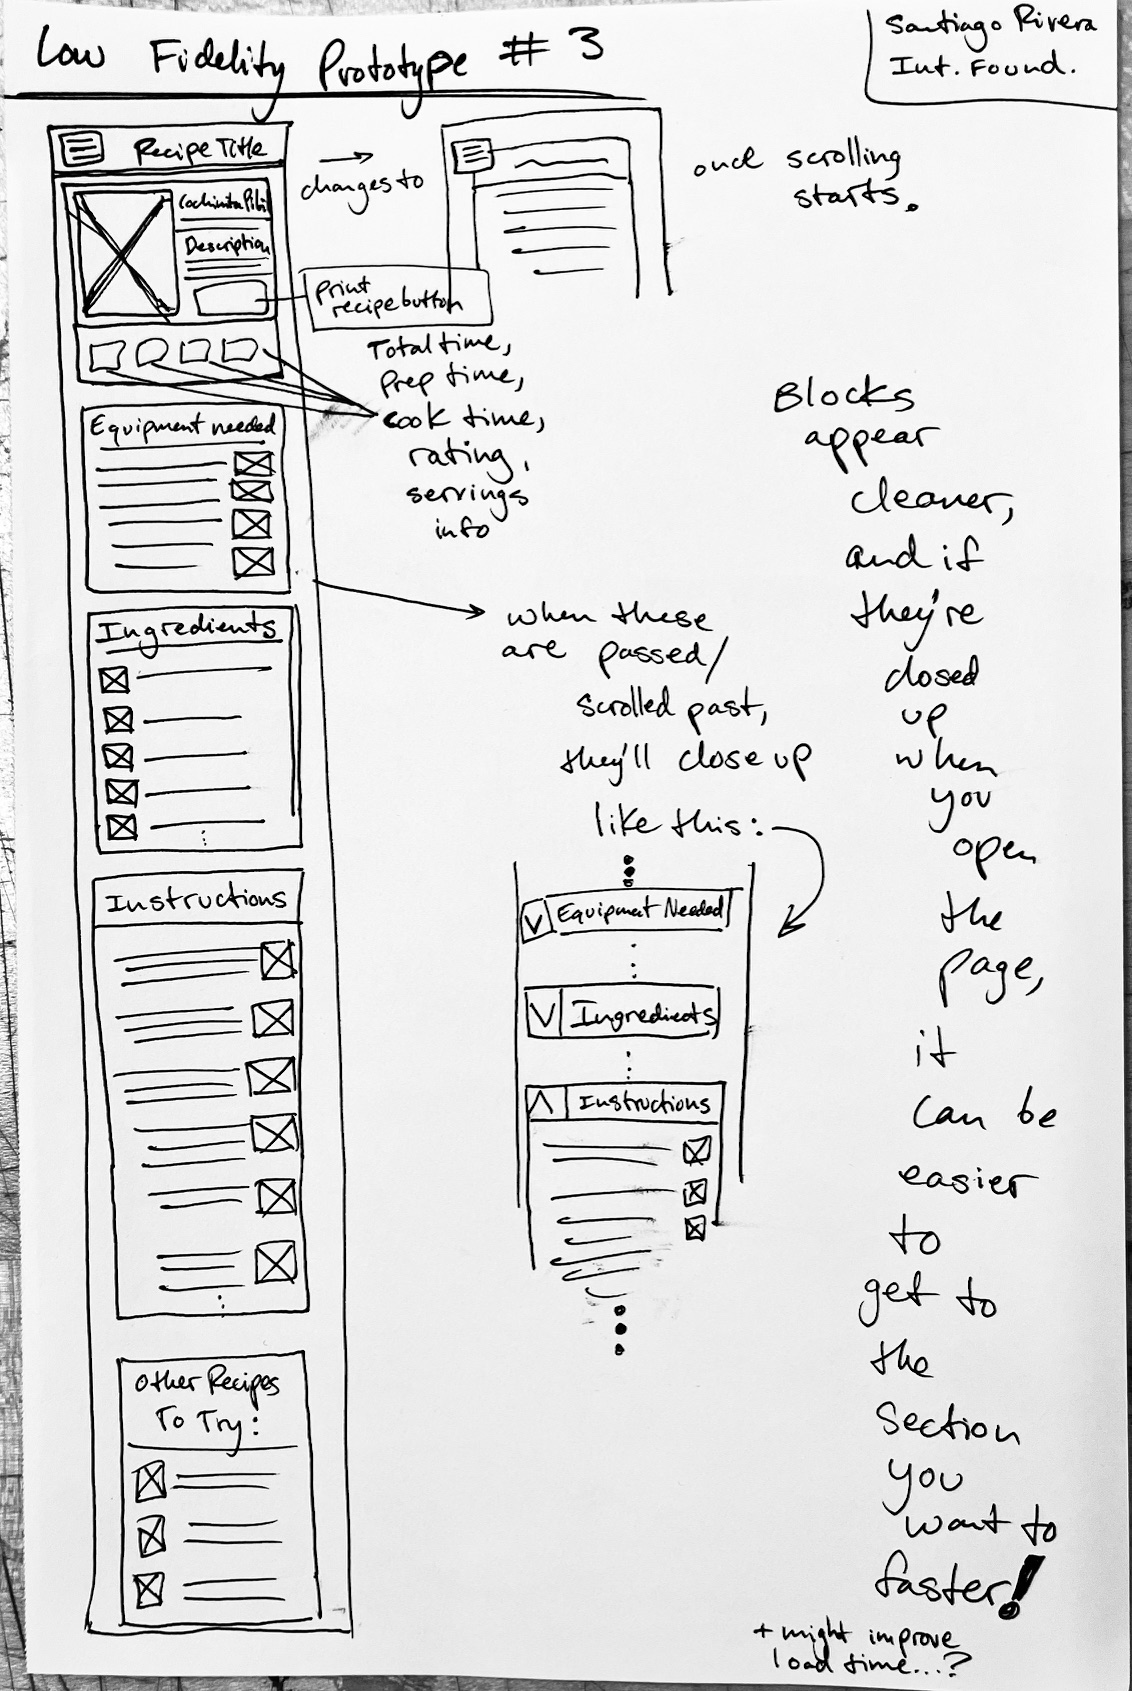 Low Fidelity Prototype # 3
Santiago Rivera
Int. Found.
Recipe Title
Cochinita Pibil
Description
changes to
once scrolling
starts.
Print
recipe button
Total time,
prep time,
cook time,
rating,
servings
info
Equipment needed
Ingredients
Instructions
Other Recipes
To Try:
when these
are passed/
scrolled past,
they'll close up
like this:
Equipment Needed
Ingredients
Instructions
Blocks
appear
cleaner,
and if
they're
closed
up
when
you
open
the
page,
it
can be
easier
to
get to
the
section
you
want to
faster!
+ might improve
load time...?